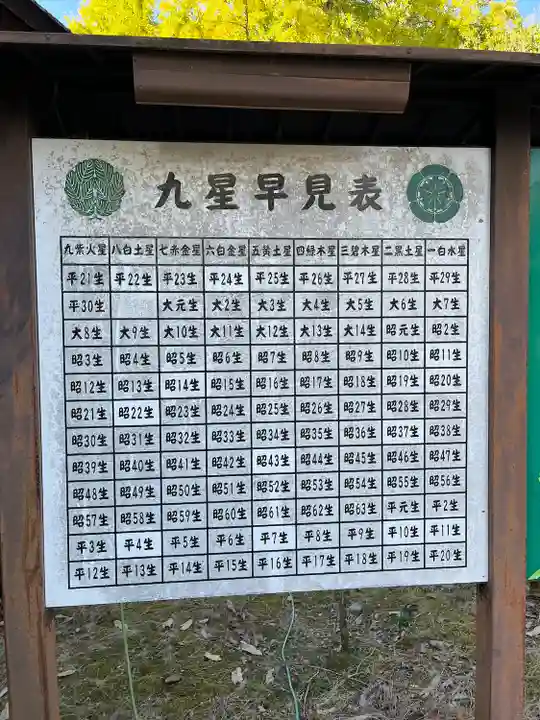 九星早見表
九紫火星 八白土星 七赤金星 六白金星 五黄土星 四緑木星 三碧木星 二黒土星 一白水星
平21生 平22生 平23生 平24生 平25生 平26生 平27生 平28生 平29生
平30生 大元生 大2生 大3生 大4生 大5生 大6生 大7生
大8生 大9生 大10生 大11生 大12生 大13生 大14生 昭元生 昭2生
昭3生 昭4生 昭5生 昭6生 昭7生 昭8生 昭9生 昭10生 昭11生
昭12生 昭13生 昭14生 昭15生 昭16生 昭17生 昭18生 昭19生 昭20生
昭21生 昭22生 昭23生 昭24生 昭25生 昭26生 昭27生 昭28生 昭29生
昭30生 昭31生 昭32生 昭33生 昭34生 昭35生 昭36生 昭37生 昭38生
昭39生 昭40生 昭41生 昭42生 昭43生 昭44生 昭45生 昭46生 昭47生
昭48生 昭49生 昭50生 昭51生 昭52生 昭53生 昭54生 昭55生 昭56生
昭57生 昭58生 昭59生 昭60生 昭61生 昭62生 昭63生 平元生 平2生
平3生 平4生 平5生 平6生 平7生 平8生 平9生 平10生 平11生
平12生 平13生 平14生 平15生 平16生 平17生 平18生 平19生 平20生